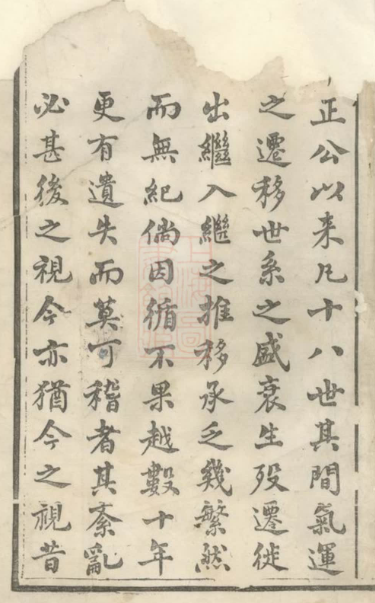 正公以来凡十八世其間氣運
之遷移世系之盛衰生殁遷徙
出繼入繼之推移承乏幾繁然
而無紀倘因循不果越數十年
更有遺失而莫可稽者其紊亂
必甚後之視今亦猶今之視昔